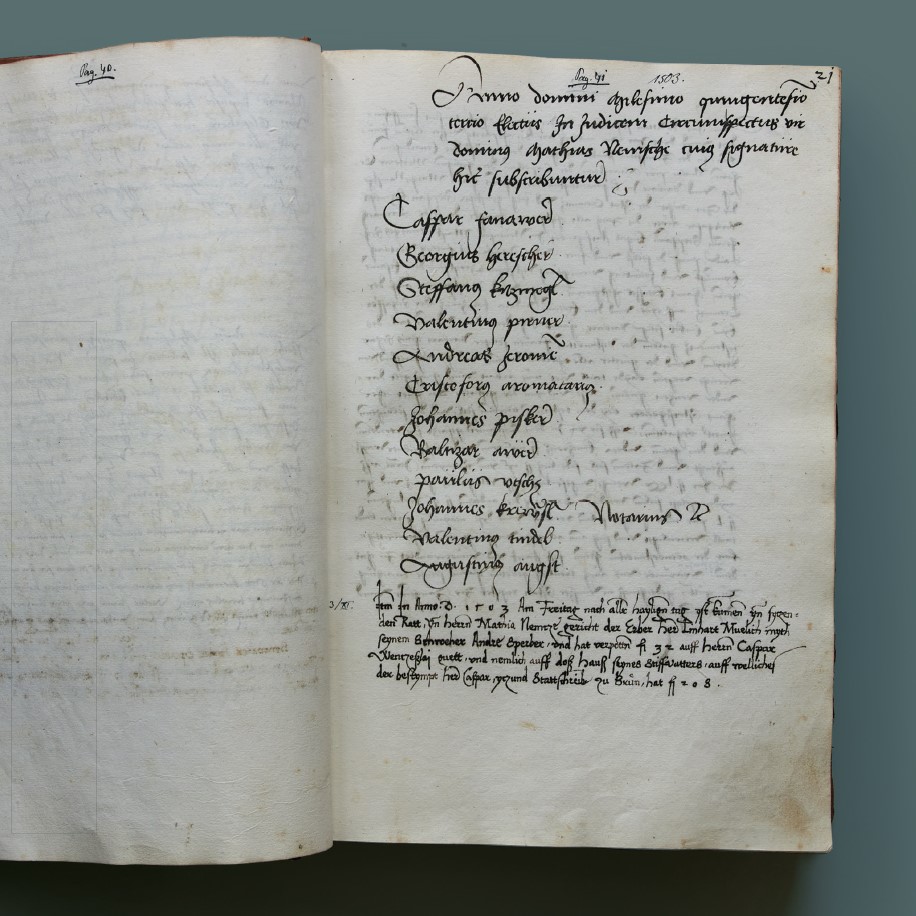 Pag. 40.
Pag. 41 1503. 21
Anno domini Milesimo quingentesio
tercio Electus In Judicem Circumspectus vir
dominus Mathias Nemsche cuius signature
hic subscribuntur
Caspar
Georgius herescher
Steffanus
Valentinus pirner
Andreas Jeronie
Cristoforus aromatarius
Johannes pisker
Baltizar
paulus
Johannes Notarius
Valentinus tindel
Augustinus augst
Item In Anno D. 1503 Am Freitag nach aller hayligen tag yst kumen yn syczen-
den Ratt, yn herrn Mathia Nemcze gericht der Erber Her Linhart Muelich myth
seynem Schwocher Andre Sperber, vnd hat verpoten fl 32 auff herrn Caspar
Wenczeslai guett, vnd nemlich auff das hauß seynes Stiffvatters, auff wellichem
der bestympt her Caspar, yczund Stattschreiber zu Brün, hat fl 208.